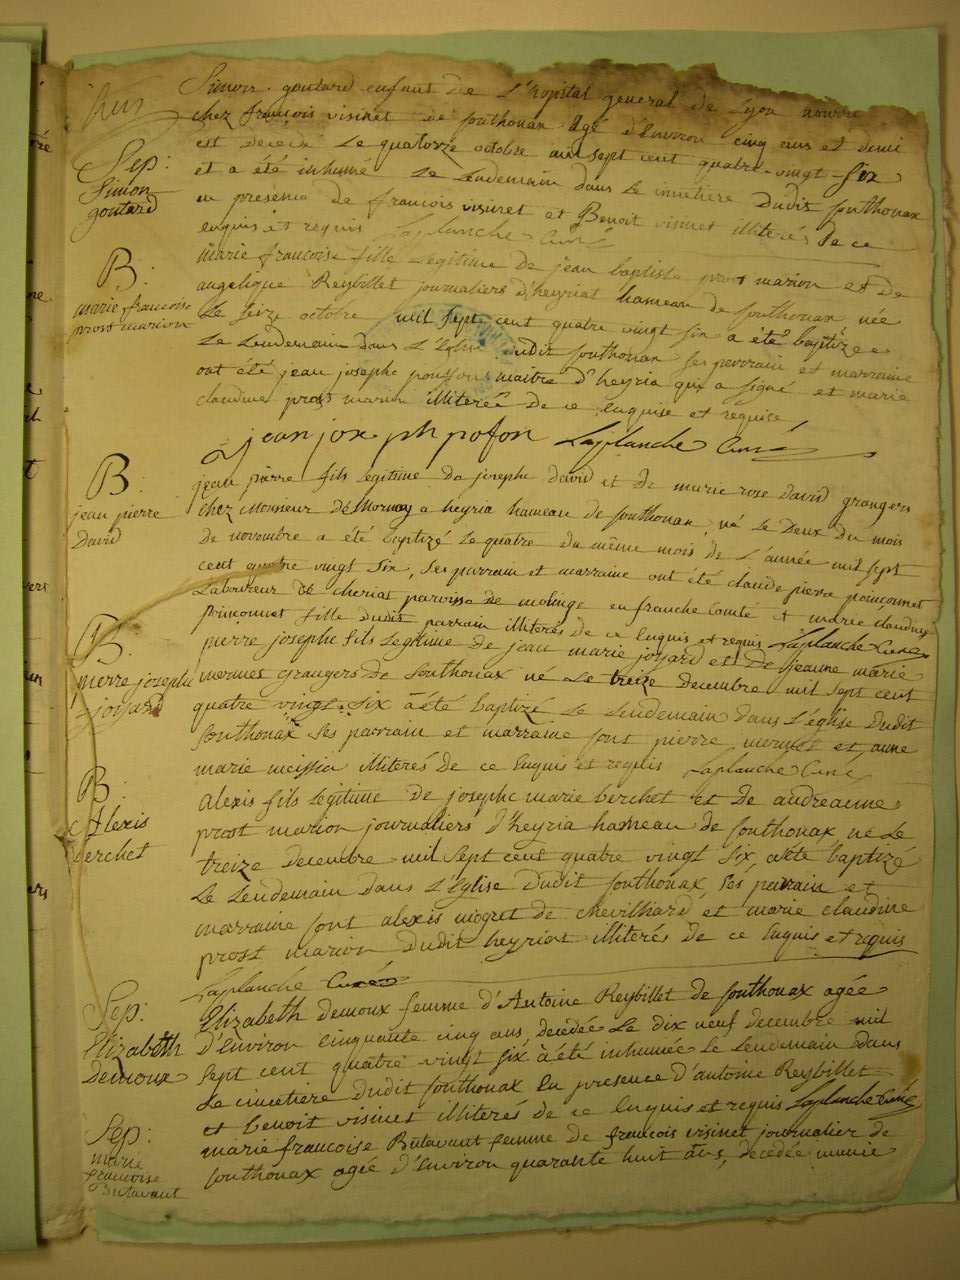 Sep:
Simon
goutard
Simon goutard enfant de L'hopital general de Lyon nourri
chez françois visinet de Southonax agé d'Environ cinq ans et demi
est decedé Le quatorze octobre mil sept cent quatre-vingt-six
et a été inhumé Le Lendemain dans Le cimetière dudit Southonax
en presence de francois visinet et Benoit visinet illiterés de ce
enquis et requis Laplanche Curé
B:
marie francoise
prost marion
marie francoise fille Legitime de jean baptiste prost marion et de
angelique Reybillet journaliers d'heyriat hameau de Southonax née
Le seize octobre mil sept cent quatre vingt six a été baptizée
Le Lendemain dans L'Eglise dudit Southonax ses parrain et marraine
ont été jean josephe maitre d'heyria qui a signé et marie
claudine prost marion illiterée de ce Enquise et requise
jean joseph pofon Laplanche Curé
B:
jean pierre
David
jean pierre fils Legitime de josephe david et de marie rose david grangers
chez Monsieur De Mornay a heyria hameau de Southonax, né Le Deux du mois
de novembre a été baptizé Le quatre du même mois de L'année mil sept
cent quatre vingt six, ses parrain et marraine ont été claude pierre poinçonnet
Laboureur de cheriat paroisse de molinge en franche Comté et marie claudine
fille dudit parrain illiterés de ce Enquis et requis Laplanche Curé
B:
pierre josephe
joyard
pierre josephe fils Legitime de jean marie joyard et de jeanne marie
mermet grangers de Southonax né Le treize decembre mil sept cent
quatre vingt six a été baptizé Le Lendemain dans L'église dudit
Southonax ses parrain et marraine sont pierre mermet et anne
marie meissia illiterés de ce Enquis et requis Laplanche Curé
B:
Alexis
berchet
Alexis fils Legitime de josephe marie berchet et de andreanne
prost marion journaliers d'heyria hameau de Southonax né Le
treize decembre mil sept cent quatre vingt six, a été baptizé
Le Lendemain dans L'Eglise dudit Southonax, ses parrain et
marraine sont alexis mogret de chevilliard et marie claudine
prost marion dudit heyriat illiterés de ce Enquis et requis
Laplanche Curé
Sep:
Elizabeth
Demoux
Elizabeth demoux femme d'Antoine Reybillet de Southonax agée
d'Environ cinquante cinq ans, decédée Le dix neuf decembre mil
sept cent quatre vingt six a été inhumée Le Lendemain dans
Le cimetière dudit Southonax En presence d'antoine Reybillet
et benoit visinet illiterés de ce Enquis et requis Laplanche Curé
Sep:
marie
francoise
Butavant
marie francoise Butavant femme de francois visinet journalier de
Southonax agée d'Environ quarante huit ans, decédée munie